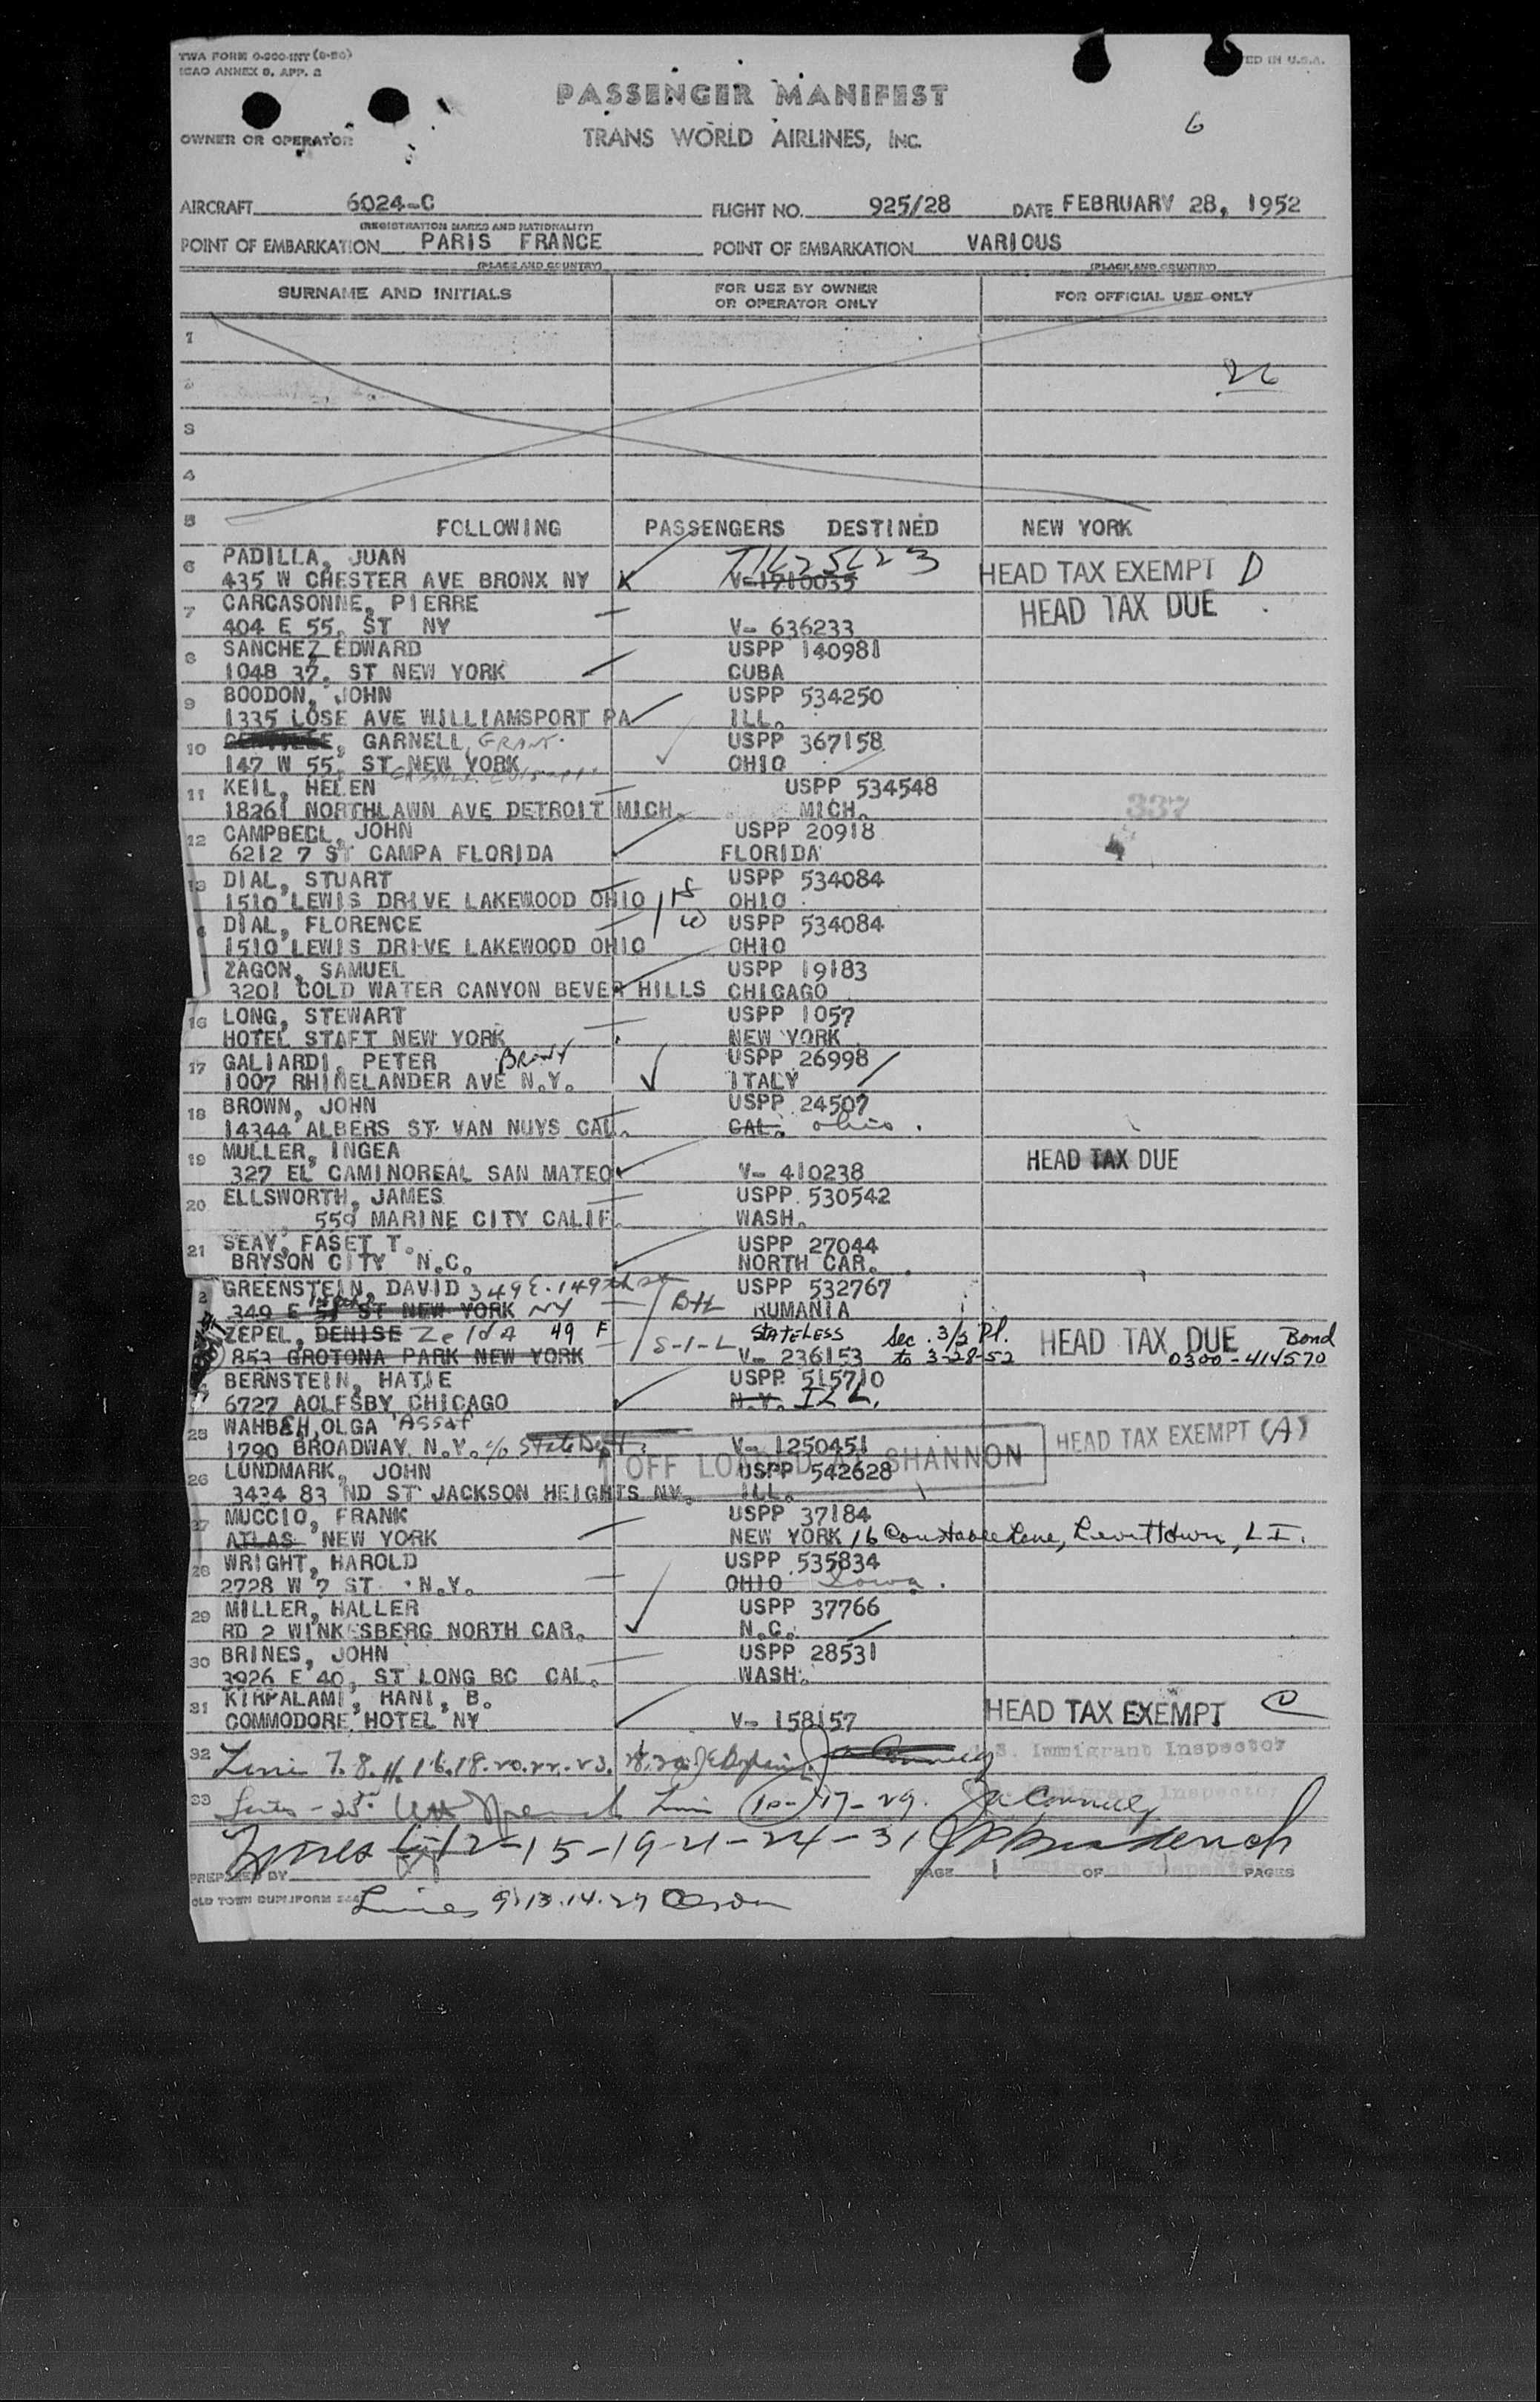 TWA FORM 0-900-INT (8-50)
ICAO ANNEX 9, APP. 2
ED IN U.S.A.
PASSENGER MANIFEST
OWNER OR OPERATOR
TRANS WORLD AIRLINES, INC.
6
AIRCRAFT 6024-C FLIGHT NO. 925/28 DATE FEBRUARY 28, 1952
(REGISTRATION MARKS AND NATIONALITY)
POINT OF EMBARKATION PARIS FRANCE POINT OF EMBARKATION VARIOUS
(PLACE AND COUNTRY) (PLACE AND COUNTRY)
SURNAME AND INITIALS FOR USE BY OWNER OR OPERATOR ONLY FOR OFFICIAL USE ONLY
1
2 26
3
4
5 FOLLOWING PASSENGERS DESTINED NEW YORK
6 PADILLA, JUAN
435 W CHESTER AVE BRONX NY V-1910035 HEAD TAX EXEMPT D
7 CARCASONNE, PIERRE HEAD TAX DUE
404 E 55, ST NY V- 636233
8 SANCHEZ EDWARD USPP 140981
1048 37, ST NEW YORK CUBA
9 BOODON, JOHN USPP 534250
1335 LOSE AVE WILLIAMSPORT PA ILL.
10 , GARNELL, GRANT. USPP 367158
147 W 55, ST NEW YORK OHIO
11 KEIL, HELEN USPP 534548
18261 NORTHLAWN AVE DETROIT MICH. MICH. 337
12 CAMPBECL, JOHN USPP 20918 4
6212 7 ST CAMPA FLORIDA FLORIDA
13 DIAL, STUART USPP 534084
1510 LEWIS DRIVE LAKEWOOD OHIO OHIO
DIAL, FLORENCE USPP 534084
1510 LEWIS DRIVE LAKEWOOD OHIO OHIO
ZAGON, SAMUEL USPP 19183
3201 COLD WATER CANYON BEVER HILLS CHICAGO
16 LONG, STEWART USPP 1057
HOTEL STAFT NEW YORK NEW YORK
17 GALIARDI, PETER BRONX USPP 26998
1007 RHINELANDER AVE N.Y. ITALY
18 BROWN, JOHN USPP 24507
14344 ALBERS ST VAN NUYS CAL. CAL. Ohio.
19 MULLER, INGEA HEAD TAX DUE
327 EL CAMINOREAL SAN MATEO V- 410238
20 ELLSWORTH, JAMES USPP 530542
559 MARINE CITY CALIF. WASH.
21 SEAY, FASET T. USPP 27044
BRYSON CITY N.C. NORTH CAR.
2 GREENSTEIN, DAVID 349 E. 149th St USPP 532767
349 E 51 ST NEW YORK NY B-I-L RUMANIA
ZEPEL, DENISE Zelda 49 F STATELESS Sec. 3/3 Pl. HEAD TAX DUE Bond
853 GROTONA PARK NEW YORK S-I-L V- 236153 to 3-28-52 0300-414570
BERNSTEIN, HATIE USPP 515710
6727 AOLFSBY CHICAGO N.Y. ILL.
25 WAHBEH, OLGA Assaf HEAD TAX EXEMPT (A)
1790 BROADWAY, N.Y. c/o State Dept V- 1250451
OFF LOADED AT SHANNON
26 LUNDMARK, JOHN USPP 542628
3434 83 ND ST JACKSON HEIGHTS NY. ILL.
27 MUCCIO, FRANK USPP 37184
ATLAS NEW YORK NEW YORK 16 Constable Lane, Levittown, L I.
28 WRIGHT, HAROLD USPP 535834
2728 W 7 ST N.Y. OHIO Iowa.
29 MILLER, HALLER USPP 37766
RD 2 WINKESBERG NORTH CAR. N.C.
30 BRINES, JOHN USPP 28531
3926 E 40, ST LONG BC CAL. WASH.
31 KIRPALAMI, HANI, B. HEAD TAX EXEMPT C
COMMODORE HOTEL NY V- 158157
32 Line 7. 8. 11. 16. 18. 20. 22. 23. Immigrant Inspector
33 Line (10-) 17-29. J A Connelly Immigrant Inspector
Lines 6-12-15-19-21-24-31
PREPARED BY PAGE 1 OF 1 PAGES
OLD TOWN DUPLIFORM
Lines 9. 13. 14. 27